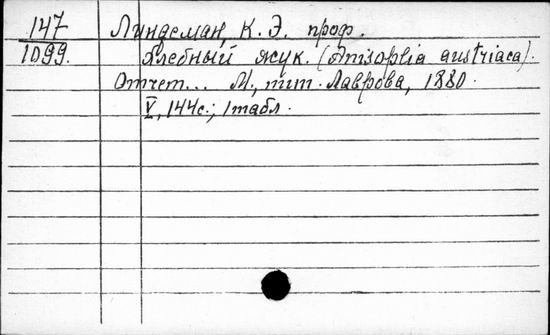 147 Линдеман, К. Э. проф.
1099. Хлебный жук. (Anisoplia austriaca).
Отчет... М., тип. Лаврова, 1880.
V, 144с.; 1 табл.